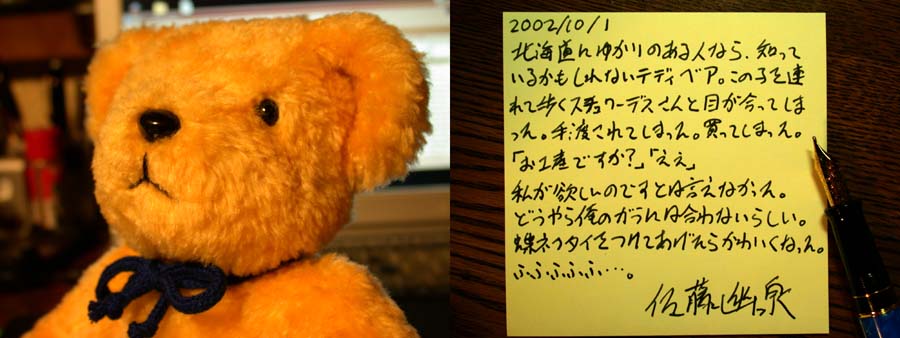 2002/10/1
北海道にゆかりのある人なら、知って
いるかもしれないテディベア。この子を連
れて歩くスチュワーデスさんと目が合ってしま
った。手渡されてしまった。買ってしまった。
「お土産ですか?」「ええ」
私が欲しいのですとは言えなかった。
どうやら俺のガラには合わないらしい。
蝶ネクタイをつけてあげたらかわいくなった。
ふふふふふ…。
佐藤